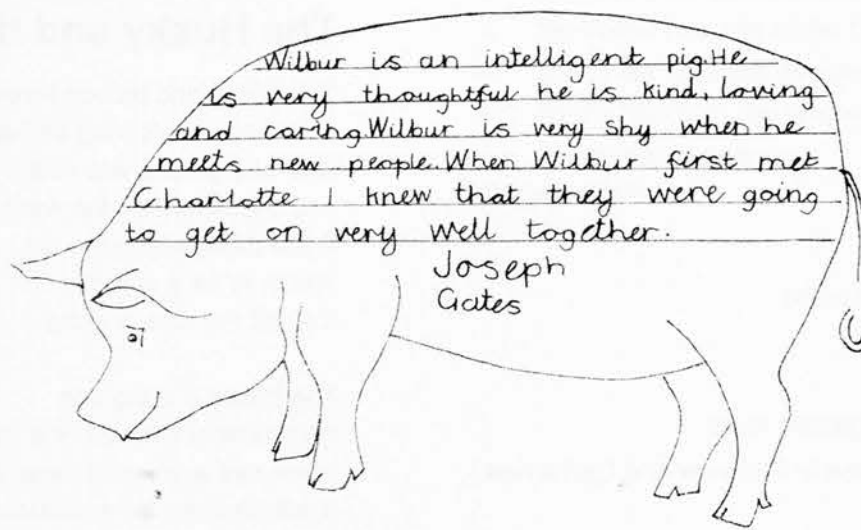 Wilbur is an intelligent pig. He
is very thoughtful he is kind, loving
and caring Wilbur is very shy when he
meets new people. When Wilbur first met
Charlotte I knew that they were going
to get on very well together.
Joseph
Gates